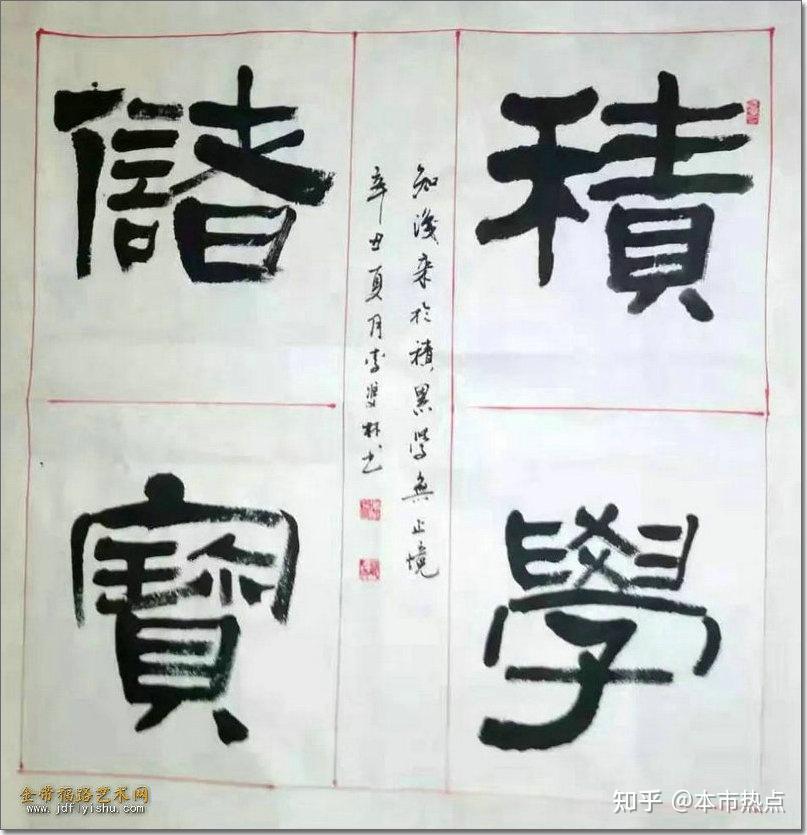 積學
知識來於積累學無止境
辛丑夏月李林书
儲寶
金带福路艺术网
www.jdflyishu.com
知乎 @本市热点